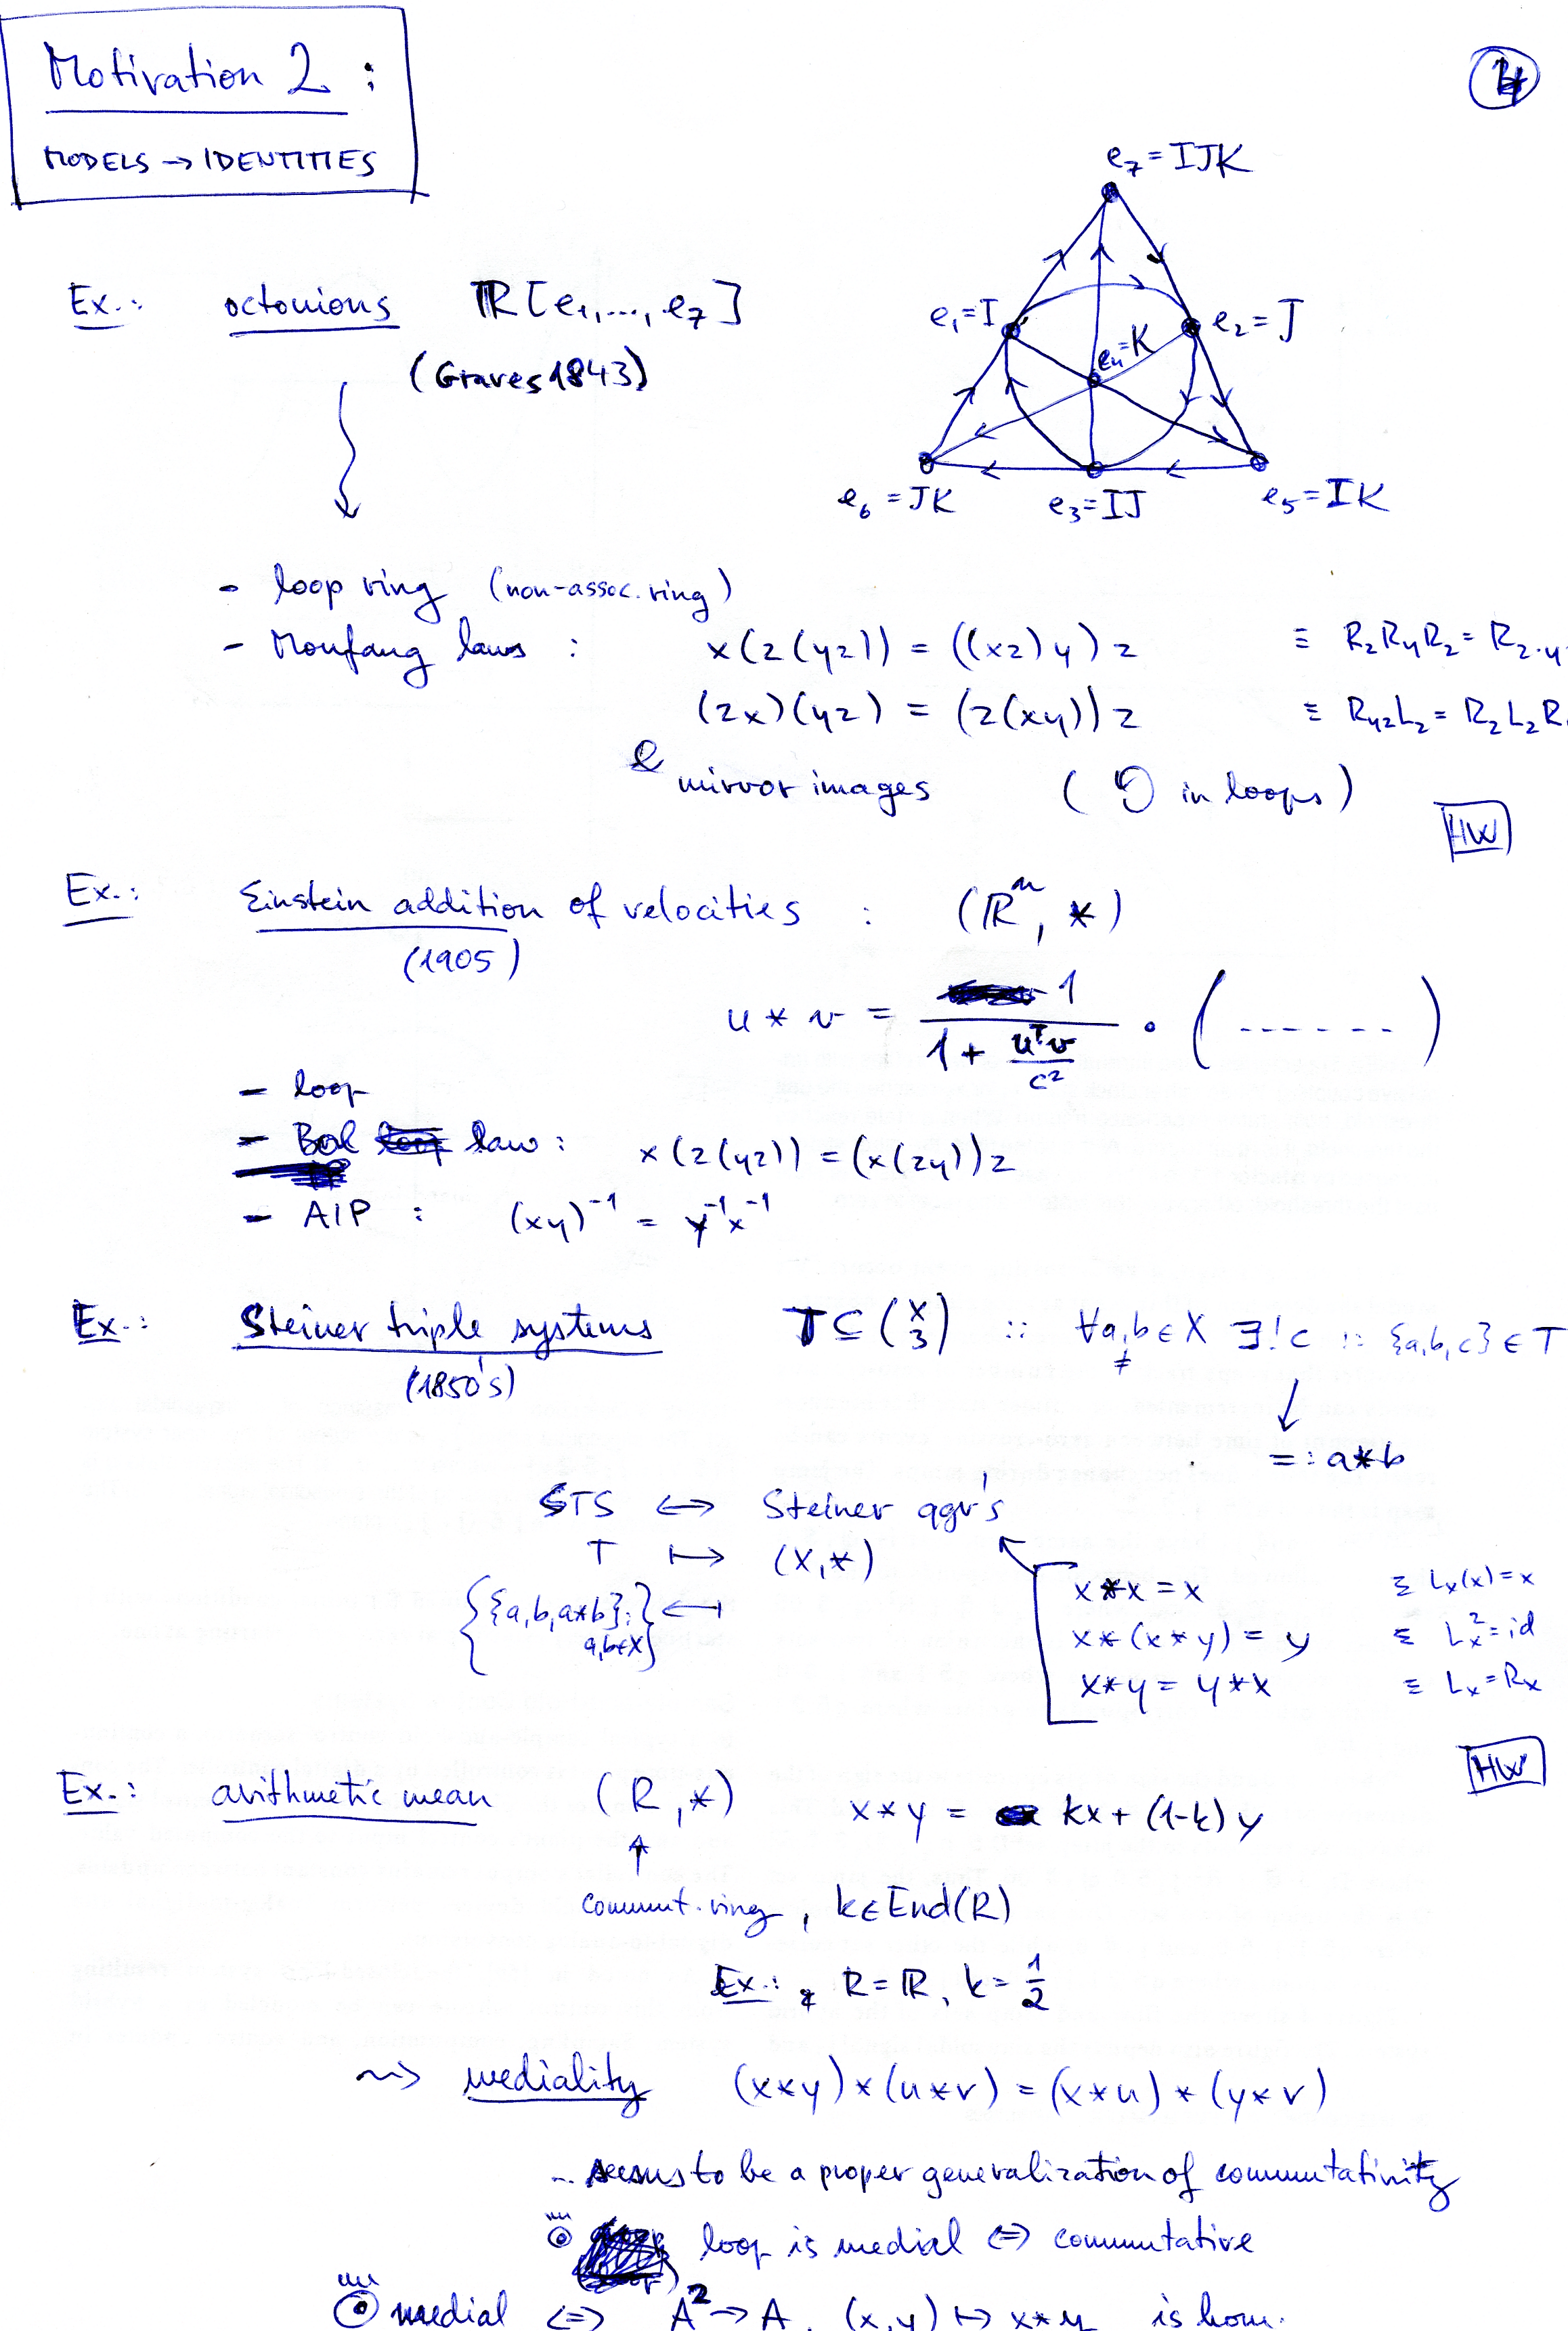 Motivation 2 :
MODELS → IDENTITIES
4
e₇ = IJK
e₁ = I
e₂ = J
e₄ = K
e₆ = JK
e₃ = IJ
e₅ = IK
Ex.: octonions ℝ[e₁,...,e₇]
(Graves 1843)
- loop ring (non-assoc. ring)
- Moufang laws : x(z(yz)) = ((xz)y)z ≡ R_z R_y R_z = R_z·y
(zx)(yz) = (z(xy))z ≡ R_yz L_z = R_z L_z R
mirror images ( in loops)
HW
Ex.: Einstein addition of velocities : (ℝⁿ, *)
(1905)
u * v = 1 / (1 + uᵀv / c²) · (------)
- loop
- Bol law : x(z(yz)) = (x(zy))z
- AIP : (xy)⁻¹ = y⁻¹x⁻¹
Ex.: Steiner triple systems T ⊆ (X 3) :: ∀a,b ∈ X ≠ ∃!c :: {a,b,c} ∈ T
(1850's)
=: a*b
STS ↔ Steiner qgr's
T ↦ (X,*)
{{a,b,a*b}: a,b∈X} ↤
x*x = x ≡ Lₓ(x) = x
x*(x*y) = y ≡ Lₓ² = id
x*y = y*x ≡ Lₓ = Rₓ
HW
Ex.: arithmetic mean (R,*) x*y = kx + (1-k)y
↑
commut. ring, k∈End(R)
Ex.: R = ℝ, k = 1/2
⇝ mediality (x*y)*(u*v) = (x*u)*(y*v)
- seems to be a proper generalization of commutativity
loop is medial ⇔ commutative
medial ⇔ A² → A, (x,y) ↦ x*y is hom.